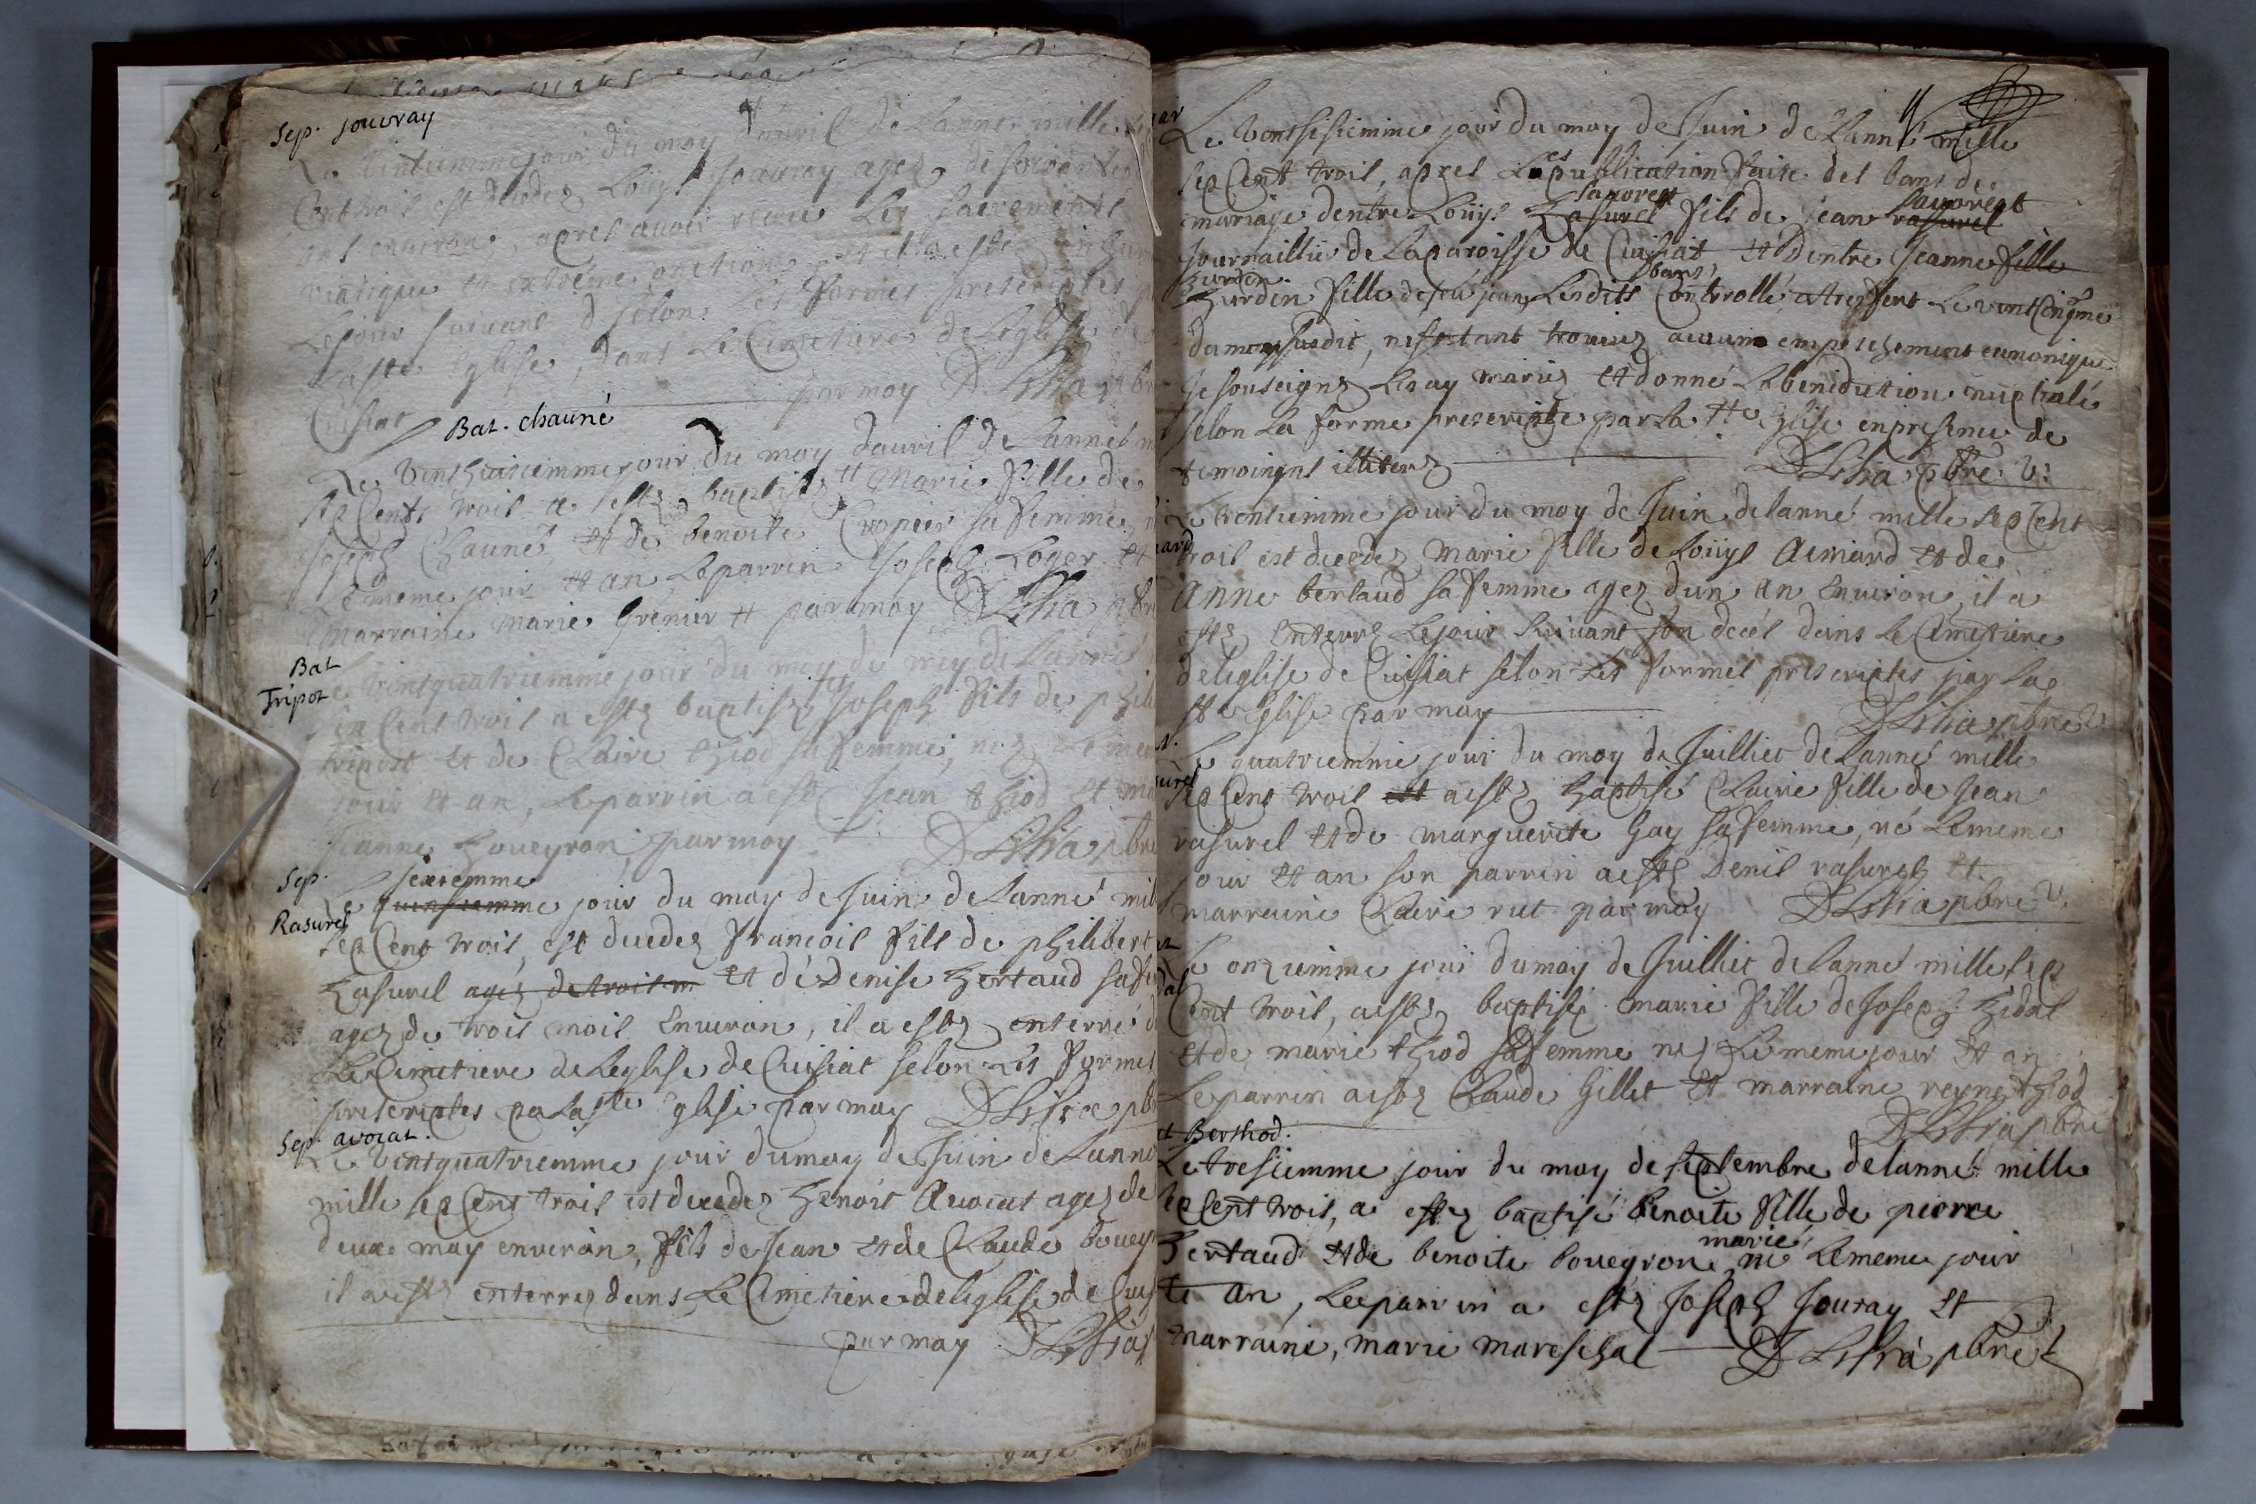 Sep. jouvray
jour du moy d'avril de Lanné mille
Cent trois est decedez Loüys Jouvray agez de soixantes
ans environ, apres avoir receu Les sacrements
viatique et extreme onction, et il a esté
Lejour suivant selon les formes prescriptes
Eglise, dans Le Cimetiere de Leglise de
Cuisiat par moy D Lisia pbre
Bat. chauné
Le vinthuictiemme jour du moy davril de Lanné
sep Cents trois a estez baptisez Marie fille de
Joseph Chauné et de benoite Cropier sa femme
Le meme jour et an, Leparrin Joseph Loger et
marraine marie Grenier par moy D Lisia pbre
Bat
Tripoz
Le vintquatriemme jour du moy de mey de Lanné
sep Cent trois a estez baptisez Joseph fils de phili
tripost et de Claire thiod sa femme, nez Le meme
jour et an, Leparrin a estez jean thiod et
jeanne boueyron, par moy D Lisia pbre
Sep.
Rasurel
seziemme
Le quinsiemme jour du moy de Juin de Lanné mil
sep Cent trois, est decedez francois fils de philibert
Rasurel agez de trois m et de Denise bertaud sa fe
agez de trois mois Environ, il a estez enterré d
Le Cimetiere de Leglise de Cuisiat selon Les formes
prescriptes pa La ste glise par moy D Lisia pbr
Sep. avocat.
Le vintquatriemme jour dumoy de Juin de Lanné
mille sep Cent trois est decedez benoit Avocat agez de
deux moy environ, fils de Jean et de Claude boueyr
il a estez enterrez dans Le Cimetiere deleglise de Cuis
par moy D Lisia p
Le vintsisiemme jour du moy de Juin de Lanné mille
sep Cent trois, apres Les publication faite des bans de
sauvorest sauvorest
mariage dentre Loüys Rasurel fils de jean rasurel
journaillie de Laparoisse de Cuisiat et dentre Jeanne fille
burdin bans
burdin fille defeu jean, Lesdits Controllé a trefort Le vintcinqme
dumoysusdit, nestant trouvez aucun empeschement canonique
Je sousignez Leay mariez et donné La benidiction nuptiale
selon La forme prescripte par La Ste Eglise enpresence de
temoingns illiterez D Lisia pbre. V:
Le trentiemme jour du moy de Juin delanné mille sep Cent
trois est decedez Marie fille de Loüys Aimard et de
Anne bertaud sa femme agez dun an Environ, il a
estez Enterrez Lejour suivant son decés dans Le Cimetiere
deleglise de Cuisiat selon Les formes prescriptes par La
ste Eglise par moy D Lisia pbre V
Le quatriemme jour du moy de Juilliet de Lanné mille
sep Cent trois est a estez baptisé Claire fille de Jean
rasurel et de marguerite Gay sa femme, né Lememe
jour et an son parrin a estez Denis rasurel et
marraine Claire rut par moy D Lisia pbre V.
Le onziemme jour dumoy de Juilliet de Lanné mille sep
Cent trois, a estez baptisé marie fille de Joseph Vidal
et de marie thiod sa femme nez Lememe jour et an
Leparrin a estez Claude Gillet et marraine reyne thiod
D Lisia pbre
Berthod.
Le tresiemme jour du moy de septembre delanné mille
sep Cent trois, a estez baptisé benoite fille de pierre
marié
bertaud et de benoite boueyron, né Lememe jour
et an, Leparrin a estez Joseph Jouray et
marraine, marie mareschal D Lisia pbre